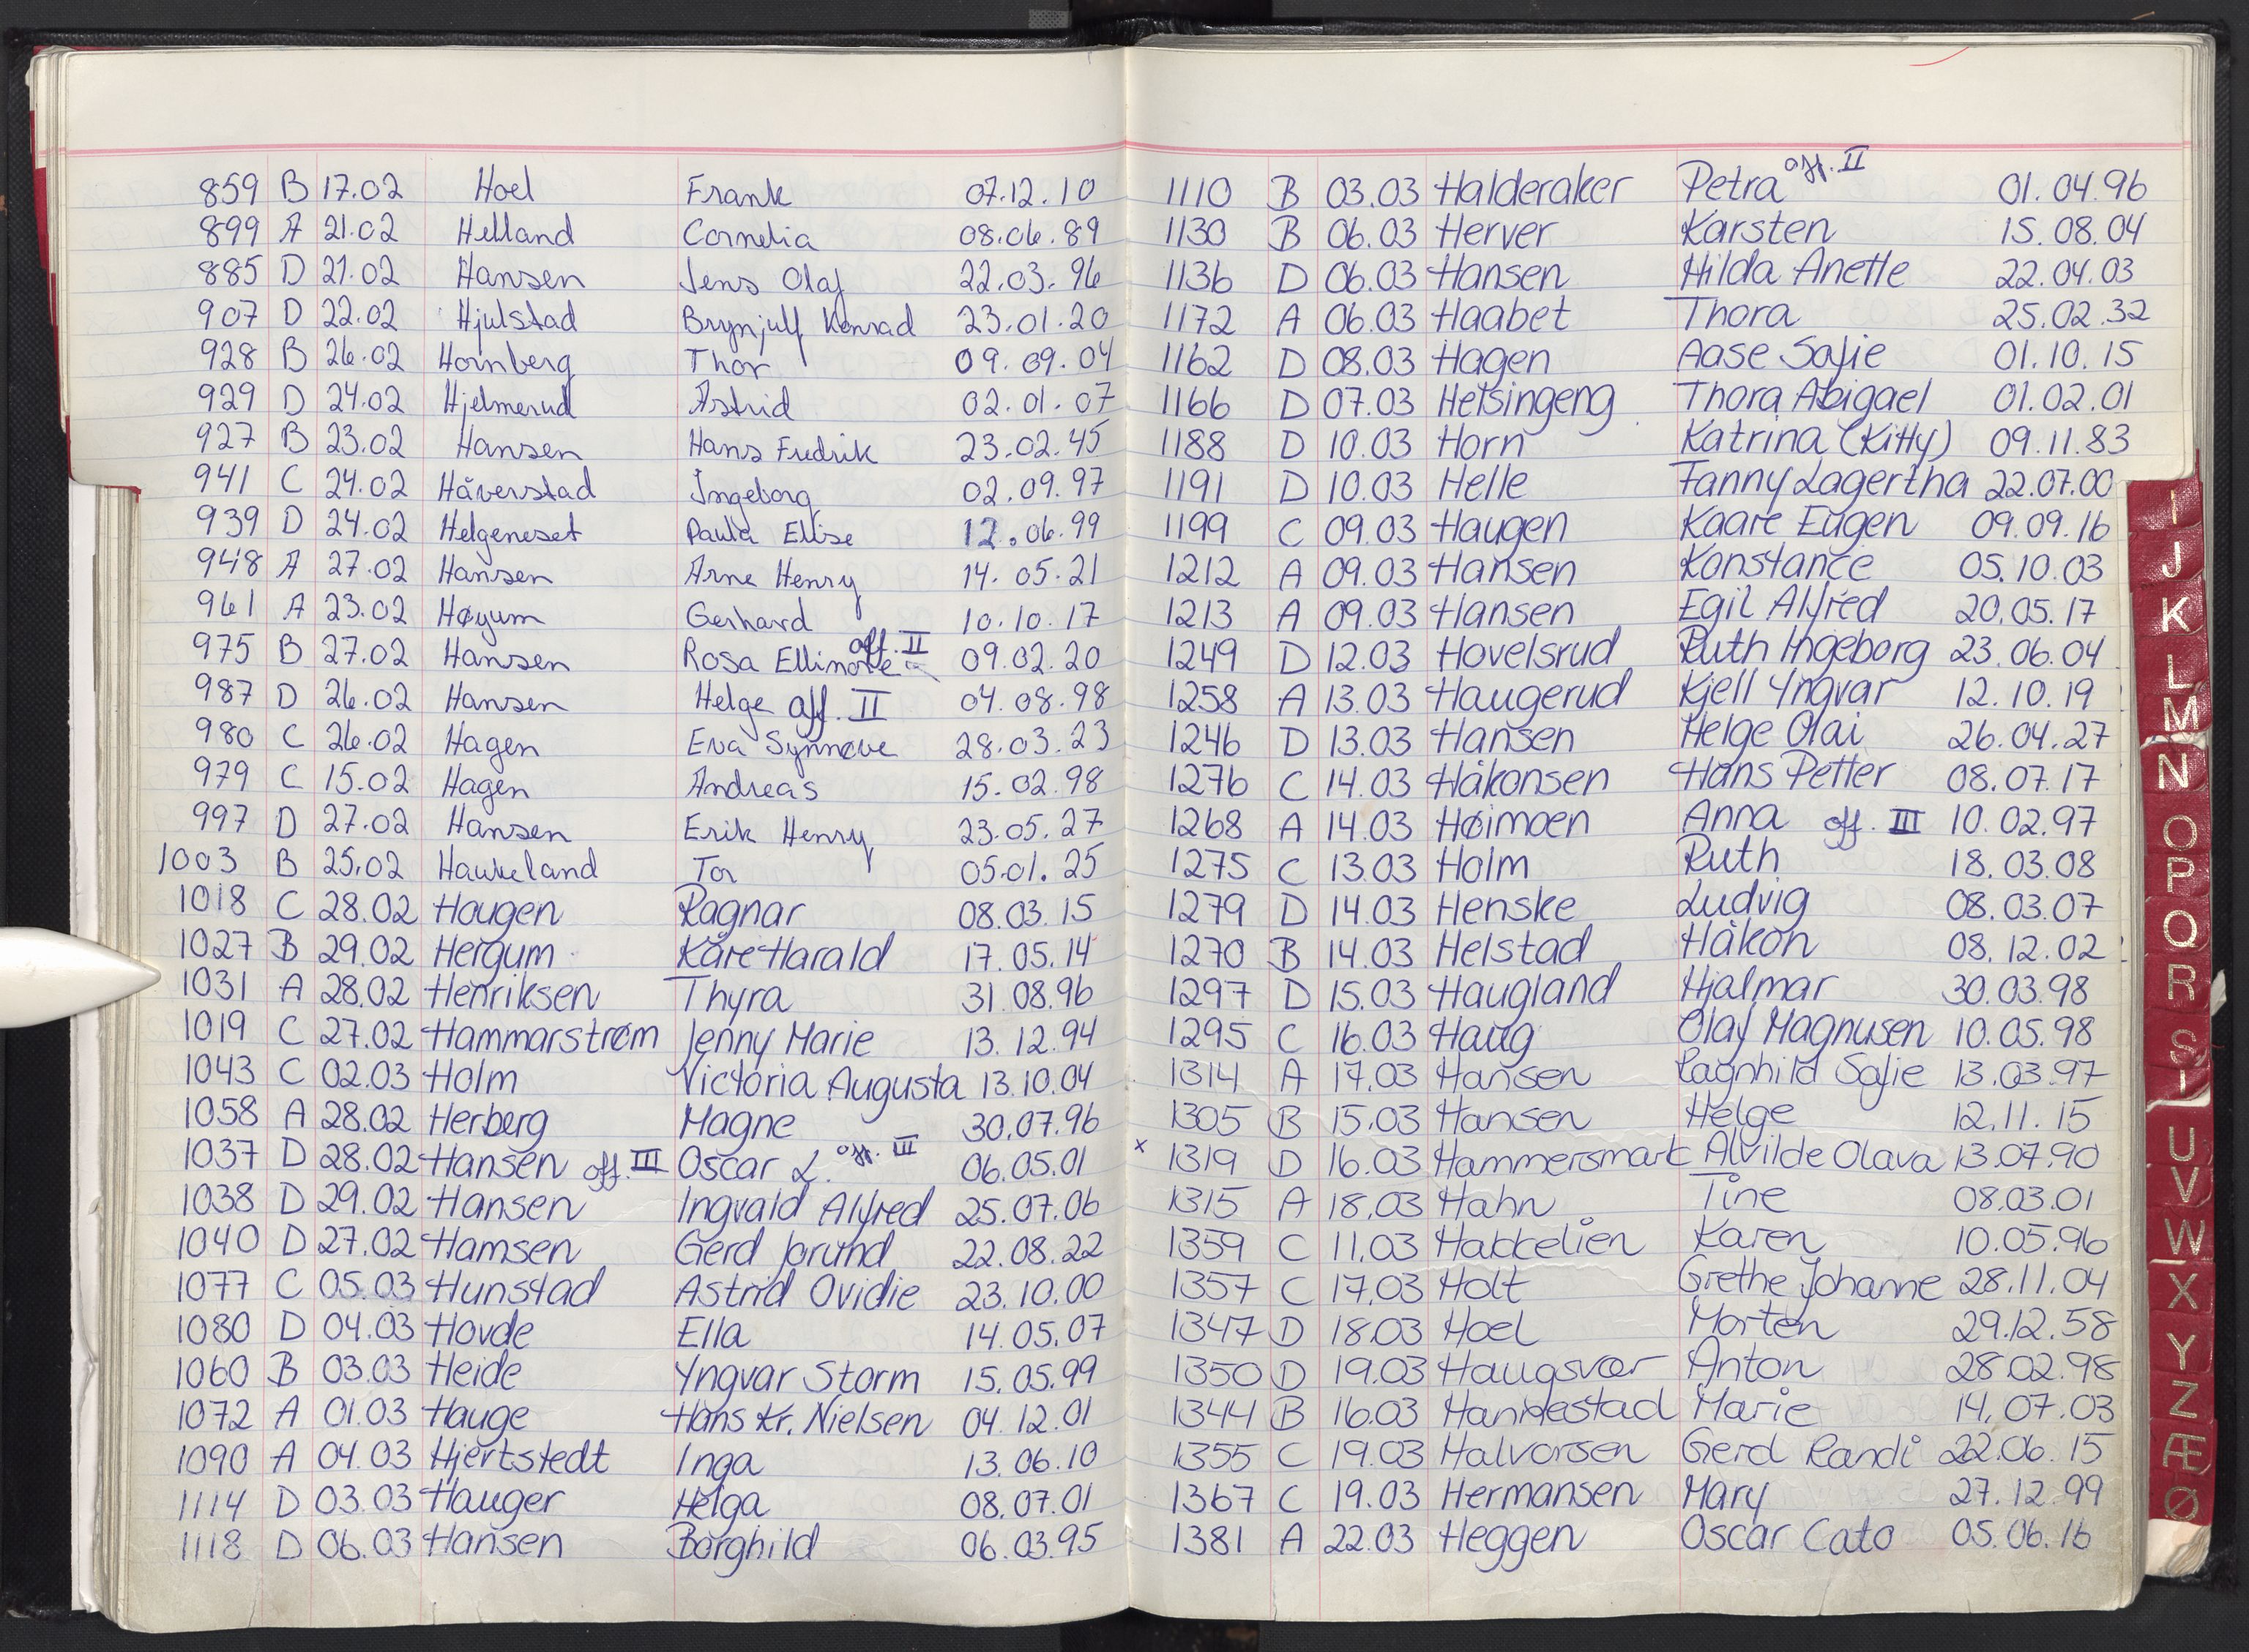 859 B 17.02 Hoel Frank 07.12.10
899 A 21.02 Helland Cornelia 08.06.89
885 D 21.02 Hansen Jens Olaf 22.03.96
907 D 22.02 Hjulstad Brynjulf Konrad 23.01.20
928 B 26.02 Hornberg Thor 09.09.04
929 D 24.02 Hjelmerud Astrid 02.01.07
927 B 23.02 Hansen Hans Fredrik 23.02.45
941 C 24.02 Håverstad Ingeborg 02.09.97
939 D 24.02 Helgeneset Paula Ellise 12.06.99
948 A 27.02 Hansen Arne Henry 14.05.21
961 A 23.02 Høyum Gerhard 10.10.17
975 B 27.02 Hansen Rosa Ellinore off. II 09.02.20
987 D 26.02 Hansen Helge off. II 04.08.98
980 C 26.02 Hagen Eva Synnøve 28.03.23
979 C 15.02 Hagen Andreas 15.02.98
997 D 27.02 Hansen Erik Henry 23.05.27
1003 B 25.02 Haukeland Tor 05.01.25
1018 C 28.02 Haugen Ragnar 08.03.15
1027 B 29.02 Hergum Kåre Harald 17.05.14
1031 A 28.02 Henriksen Thyra 31.08.96
1019 C 27.02 Hammarstrøm Jenny Marie 13.12.94
1043 C 02.03 Holm Victoria Augusta 13.10.04
1058 A 28.02 Herberg Magne 30.07.96
1037 D 28.02 Hansen off. III Oscar L. off. III 06.05.01
1038 D 29.02 Hansen Ingvald Alfred 25.07.06
1040 D 27.02 Hamsen Gerd Jorund 22.08.22
1077 C 05.03 Hunstad Astrid Ovidie 23.10.00
1080 D 04.03 Hovde Ella 14.05.07
1060 B 03.03 Heide Yngvar Storm 15.05.99
1072 A 01.03 Hauge Hans Kr. Nielsen 04.12.01
1090 A 04.03 Hjertstedt Inga 13.06.10
1114 D 03.03 Hauger Helga 08.07.01
1118 D 06.03 Hansen Borghild 06.03.95
1110 B 03.03 Halderaker Petra off. II 01.04.96
1130 B 06.03 Herver Karsten 15.08.04
1136 D 06.03 Hansen Hilda Anette 22.04.03
1172 A 06.03 Haabet Thora 25.02.32
1162 D 08.03 Hagen Aase Sofie 01.10.15
1166 D 07.03 Helsingeng Thora Abigael 01.02.01
1188 D 10.03 Horn Katrina (Kitty) 09.11.83
1191 D 10.03 Helle Fanny Lagertha 22.07.00
1199 C 09.03 Haugen Kaare Eugen 09.09.16
1212 A 09.03 Hansen Konstance 05.10.03
1213 A 09.03 Hansen Egil Alfred 20.05.17
1249 D 12.03 Hovelsrud Ruth Ingeborg 23.06.04
1258 A 13.03 Haugerud Kjell Yngvar 12.10.19
1246 D 13.03 Hansen Helge Olai 26.04.27
1276 C 14.03 Håkonsen Hans Petter 08.07.17
1268 A 14.03 Høimoen Anna off. III 10.02.97
1275 C 13.03 Holm Ruth 18.03.08
1279 D 14.03 Henske Ludvig 08.03.07
1270 B 14.03 Helstad Håkon 08.12.02
1297 D 15.03 Haugland Hjalmar 30.03.98
1295 C 16.03 Haug Olaf Magnusen 10.05.98
1314 A 17.03 Hansen Ragnhild Sofie 13.03.97
1305 B 15.03 Hansen Helge 12.11.15
x 1319 D 16.03 Hammersmark Alvilde Olava 13.07.90
1315 A 18.03 Hahn Tine 08.03.01
1359 C 11.03 Hakkelien Karen 10.05.96
1357 C 17.03 Holt Grethe Johanne 28.11.04
1347 D 18.03 Hoel Morten 29.12.58
1350 D 19.03 Haugsvær Anton 28.02.98
1344 B 16.03 Hannestad Marie 14.07.03
1355 C 19.03 Halvorsen Gerd Randi 22.06.15
1367 C 19.03 Hermansen Mary 27.12.99
1381 A 22.03 Heggen Oscar Cato 05.06.16
I
J
K
L
M
N
O
P
Q
R
S
U
V
W
X
Y
Z
Æ
Ø